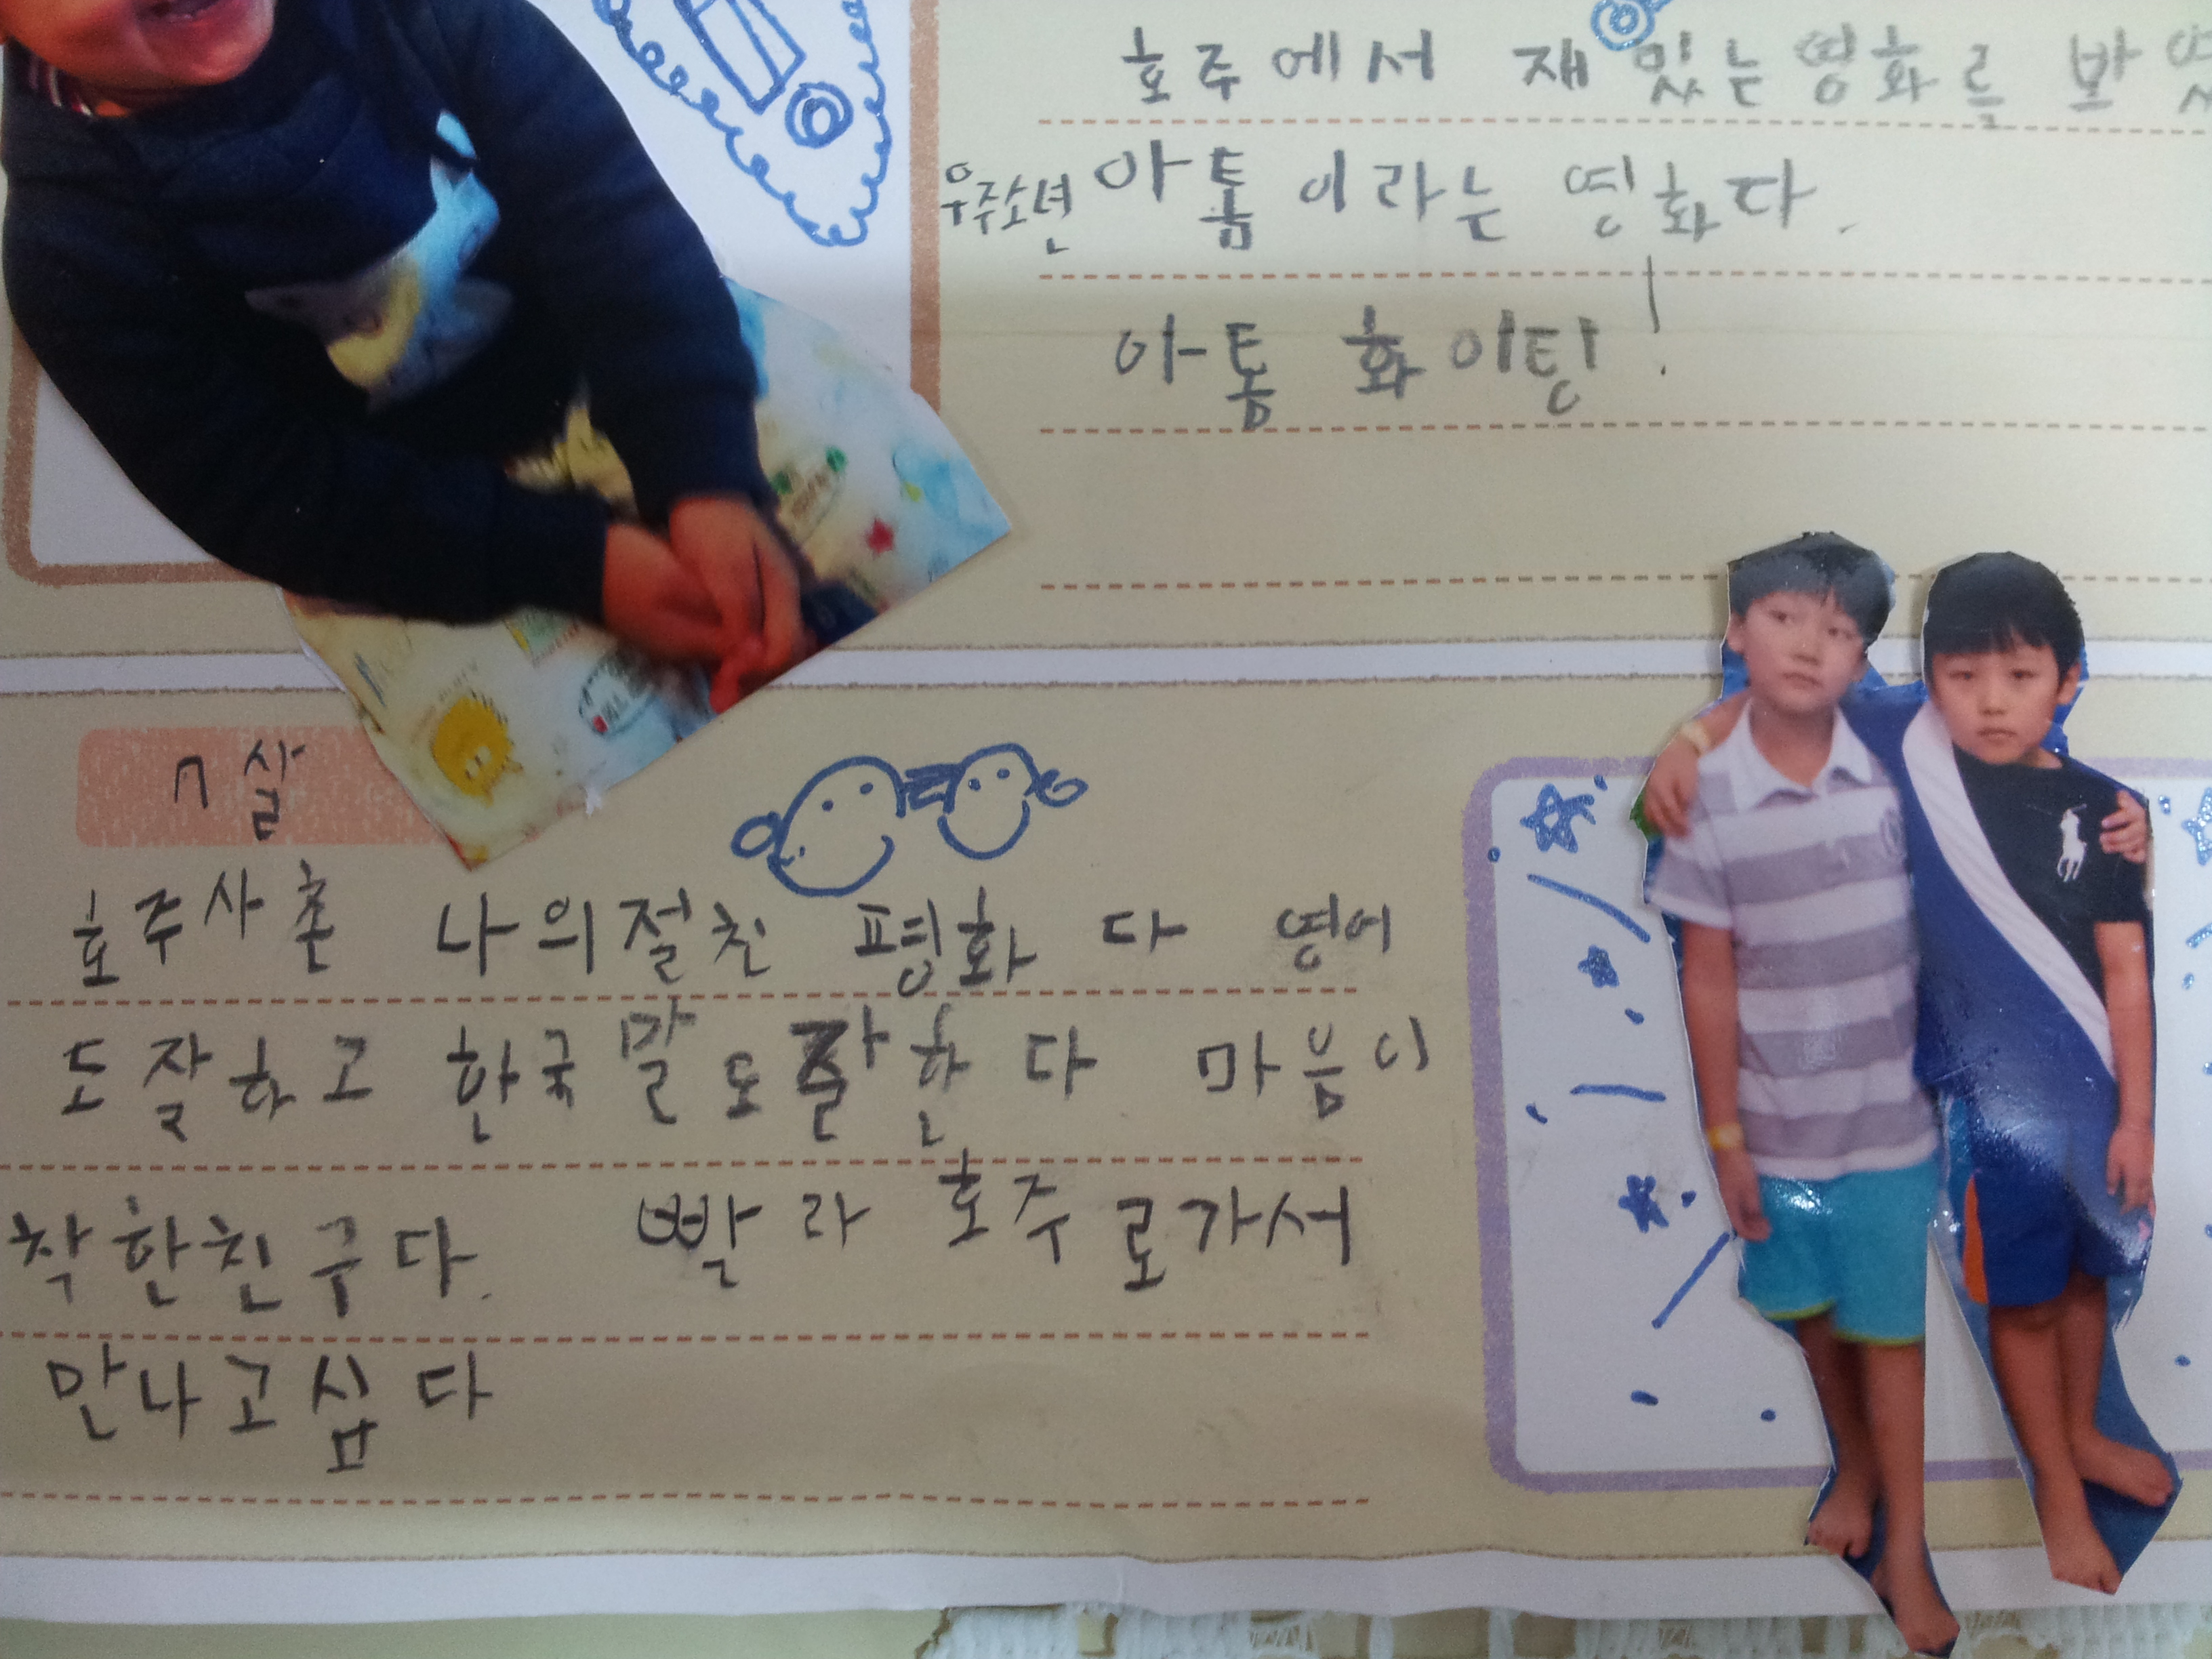 호주에서 재밌는영화를 봐
우주소년 아톰이라는 영화다.
아톰 화이팅!
7살
호주사촌 나의절친 평화다 영어
도잘하고 한국말도잘한다 마음이
착한친구다. 빨라 호주로가서
만나고심다